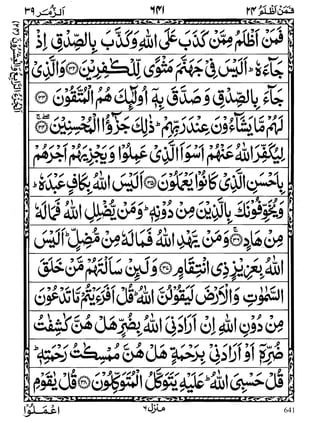 فَمَنْ اَظْلَمُ ٢٤ ٦٤١ اَلزُّمَر ٣٩
فَمَنْ اَظْلَمُ مِمَّنْ كَذَبَ عَلَى اللّٰهِ وَكَذَّبَ بِالصِّدْقِ اِذْ
جَآءَهٗ ؕ اَلَيْسَ فِيْ جَهَنَّمَ مَثْوًى لِّلْكٰفِرِيْنَ ﴿٣٢﴾ وَالَّذِيْ
جَآءَ بِالصِّدْقِ وَ صَدَّقَ بِهٖٓ اُولٰٓئِكَ هُمُ الْمُتَّقُوْنَ ﴿٣٣﴾
لَهُمْ مَّا يَشَآءُوْنَ عِنْدَ رَبِّهِمْ ؕ ذٰلِكَ جَزٰٓؤُا الْمُحْسِنِيْنَ ﴿٣٤﴾
لِيُكَفِّرَ اللّٰهُ عَنْهُمْ اَسْوَاَ الَّذِيْ عَمِلُوْا وَ يَجْزِيَهُمْ اَجْرَهُمْ
بِاَحْسَنِ الَّذِيْ كَانُوْا يَعْمَلُوْنَ ﴿٣٥﴾ اَلَيْسَ اللّٰهُ بِكَافٍ عَبْدَهٗ ؕ
وَ يُخَوِّفُوْنَكَ بِالَّذِيْنَ مِنْ دُوْنِهٖ ؕ وَمَنْ يُّضْلِلِ اللّٰهُ فَمَا لَهٗ
مِنْ هَادٍ ﴿٣٦﴾ وَمَنْ يَّهْدِ اللّٰهُ فَمَا لَهٗ مِنْ مُّضِلٍّ ؕ اَلَيْسَ
اللّٰهُ بِعَزِيْزٍ ذِي انْتِقَامٍ ﴿٣٧﴾ وَلَئِنْ سَاَلْتَهُمْ مَّنْ خَلَقَ
السَّمٰوٰتِ وَالْاَرْضَ لَيَقُوْلُنَّ اللّٰهُ ؕ قُلْ اَفَرَءَيْتُمْ مَّا تَدْعُوْنَ
مِنْ دُوْنِ اللّٰهِ اِنْ اَرَادَنِيَ اللّٰهُ بِضُرٍّ هَلْ هُنَّ كٰشِفٰتُ
ضُرِّهٖٓ اَوْ اَرَادَنِيْ بِرَحْمَةٍ هَلْ هُنَّ مُمْسِكٰتُ رَحْمَتِهٖ ؕ
قُلْ حَسْبِيَ اللّٰهُ ؕ عَلَيْهِ يَتَوَكَّلُ الْمُتَوَكِّلُوْنَ ﴿٣٨﴾ قُلْ يٰقَوْمِ
641 منزل ٦ اعْمَلُوْا